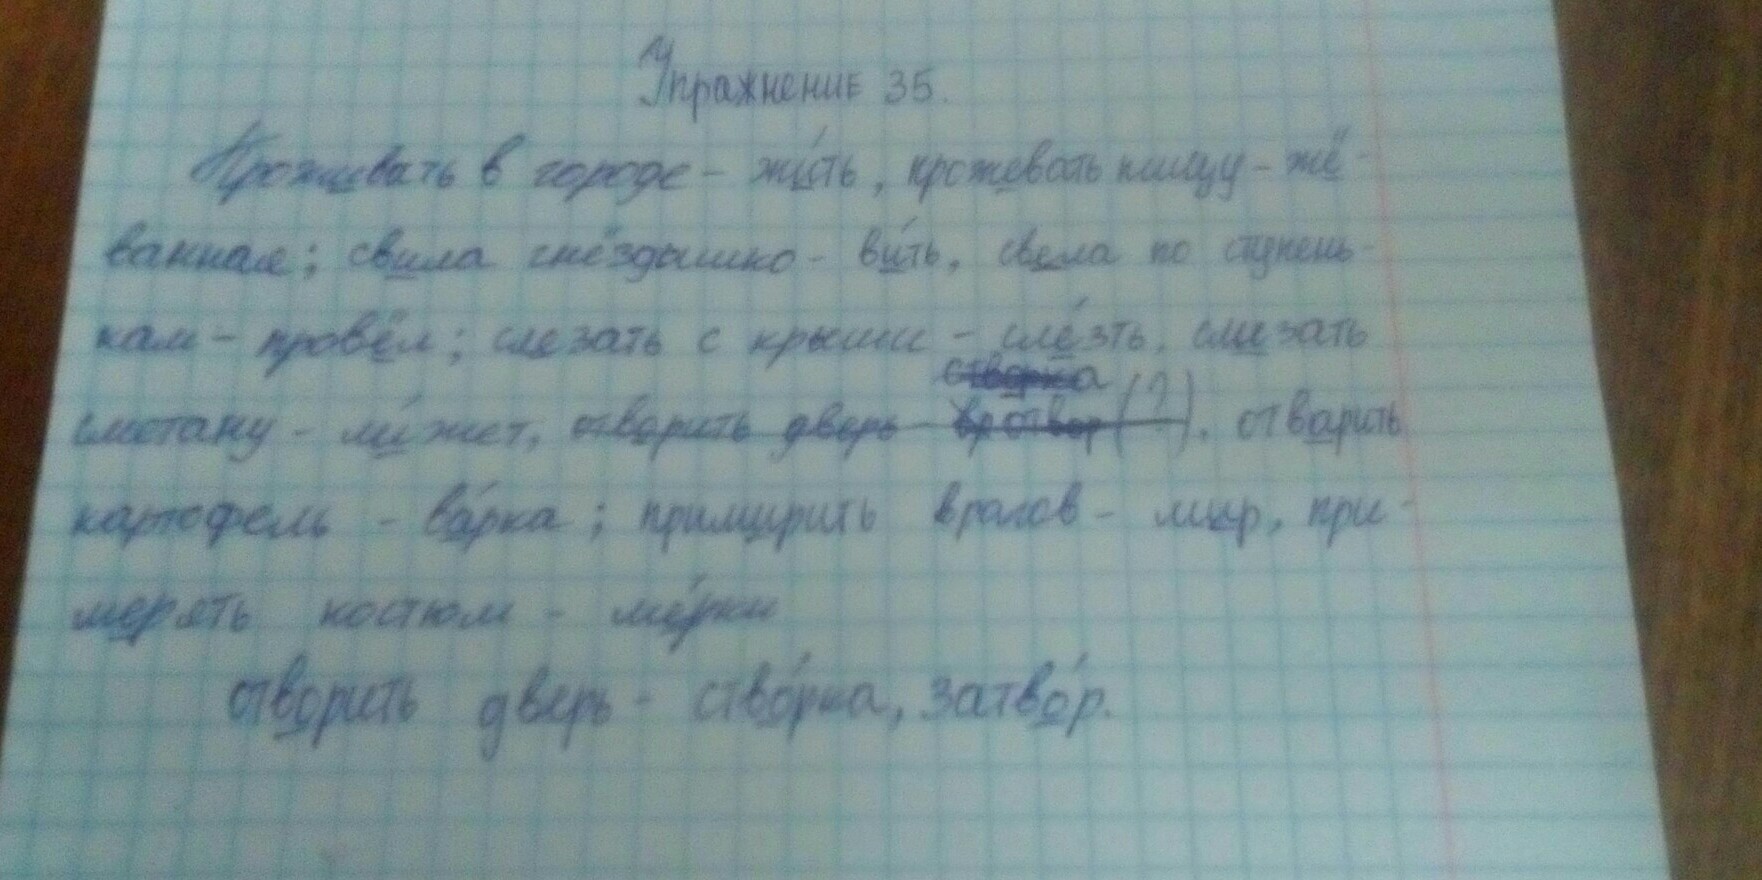 Упражнение 35.
Проживать в городе - жи́ть, прожевать пищу - жё-
ванная; свила гнёздышко - ви́ть, свела по ступень-
кам - провёл; слезать с крыши - сле́зть, слизать
сметану - ли́жет, отворить дверь - створка отвор (?), отварить
картофель - ва́рка; примирить врагов - мир, при-
мерять костюм - ме́рки
отворить дверь - ство́рка, затво́р.